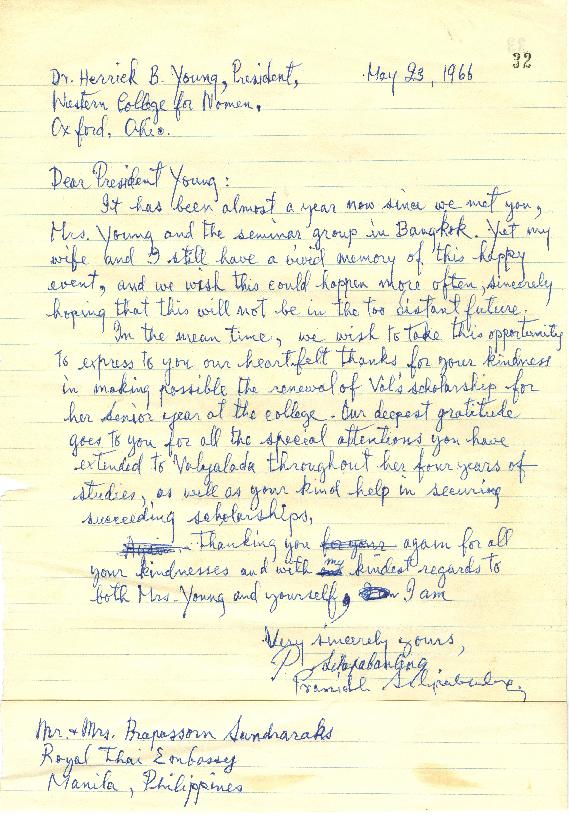 32
Dr. Herrick B. Young, President, May 23, 1966
Western College for Women,
Oxford, Ohio.
Dear President Young:
It has been almost a year now since we met you,
Mrs. Young and the seminar group in Bangkok. Yet my
wife and I still have a vivid memory of this happy
event, and we wish this could happen more often, sincerely
hoping that this will not be in the too distant future.
In the mean time, we wish to take this opportunity
to express to you our heartfelt thanks for your kindness
in making possible the renewal of Val's scholarship for
her senior year at the college. Our deepest gratitude
goes to you for all the special attentions you have
extended to Valyalada throughout her four years of
studies, as well as your kind help in securing
succeeding scholarships.
Again Thanking you for your again for all
your kindnesses and with my kindest regards to
both Mrs. Young and yourself, I am
Very sincerely yours,
P.
Mr. & Mrs. Prapassorn Sundraraks
Royal Thai Embassy
Manila, Philippines